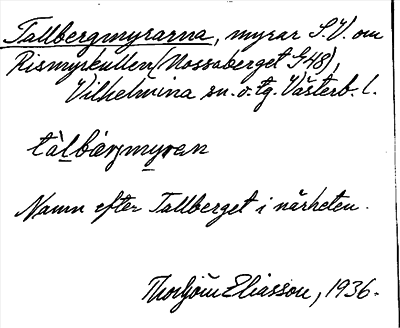 Tallbergmyrarna, myrar S.V. om
Rismyrkullen (Nossaberget G48),
Vilhelmina sn. o. tg. Västerb. l.
tàlbárjmyran
Namn efter Tallberget i närheten.
Thorbjörn Eliasson, 1936.